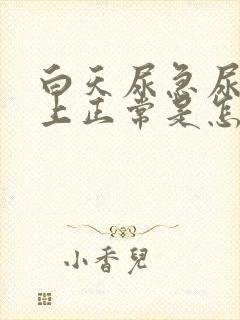 白天尿急尿
上正常是怎
小香兒